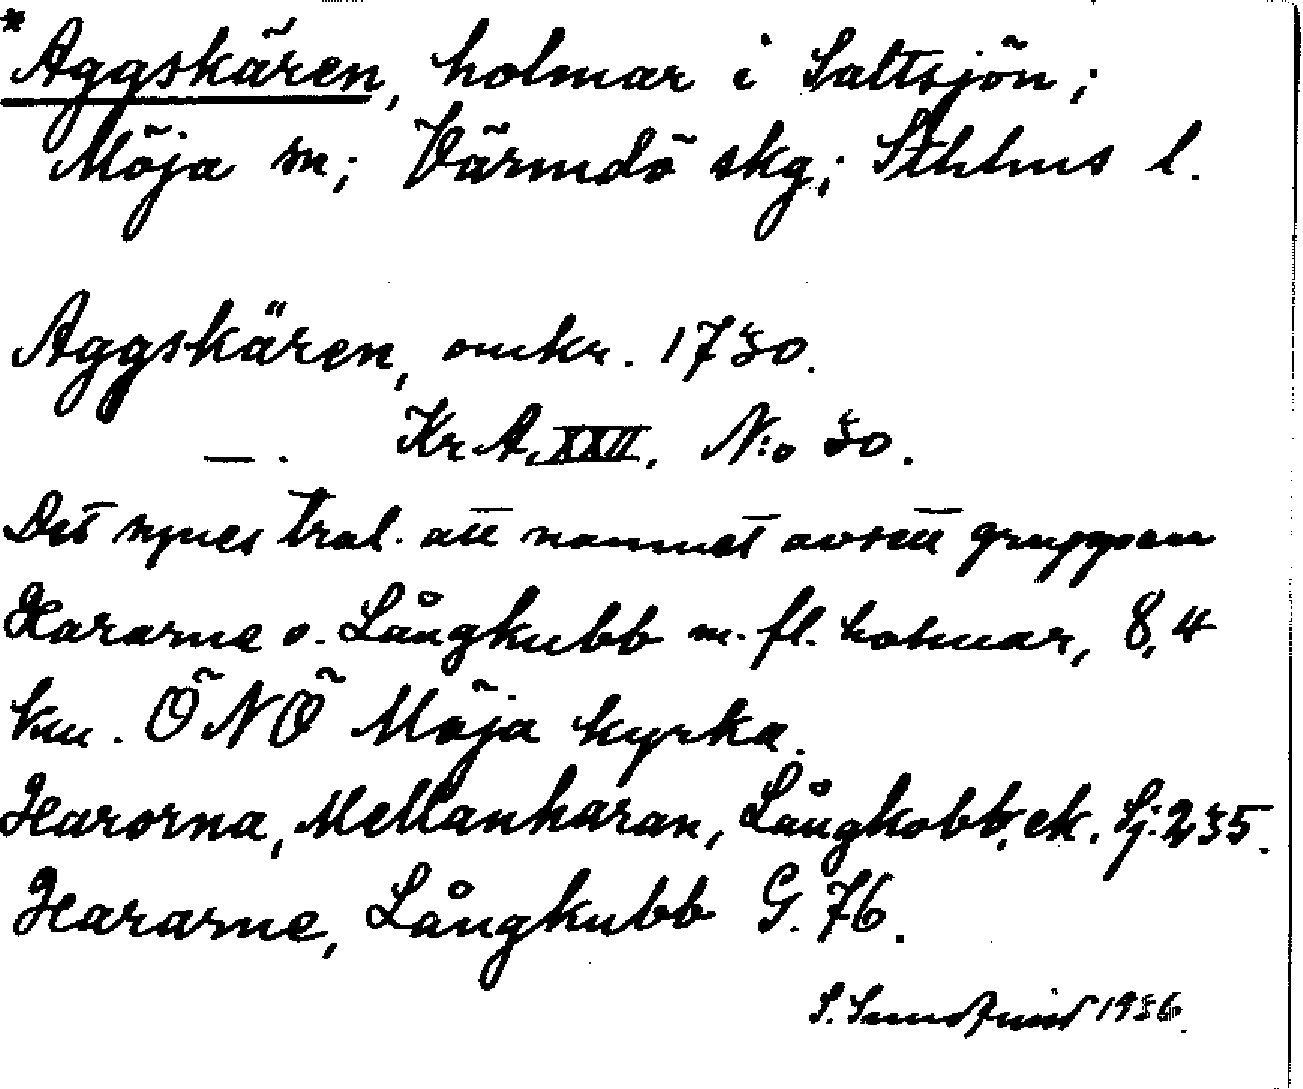 *Aggskären, holmar i Saltsjön;
Möja sn; Värmdö skg; Sthlms l.
Aggskären, omkr. 1730.
— . Kr A. XXII. N:o 30.
Det synes trol. att namnet avsett gruppen
Hararne o. Långkubb m. fl. holmar, 8,4
km. ÖNÖ Möja kyrka.
Harorna, Mellanharan, Långkobb, ek. Sj: 235.
Hararne, Långkubb G. 76.
S. 1936.